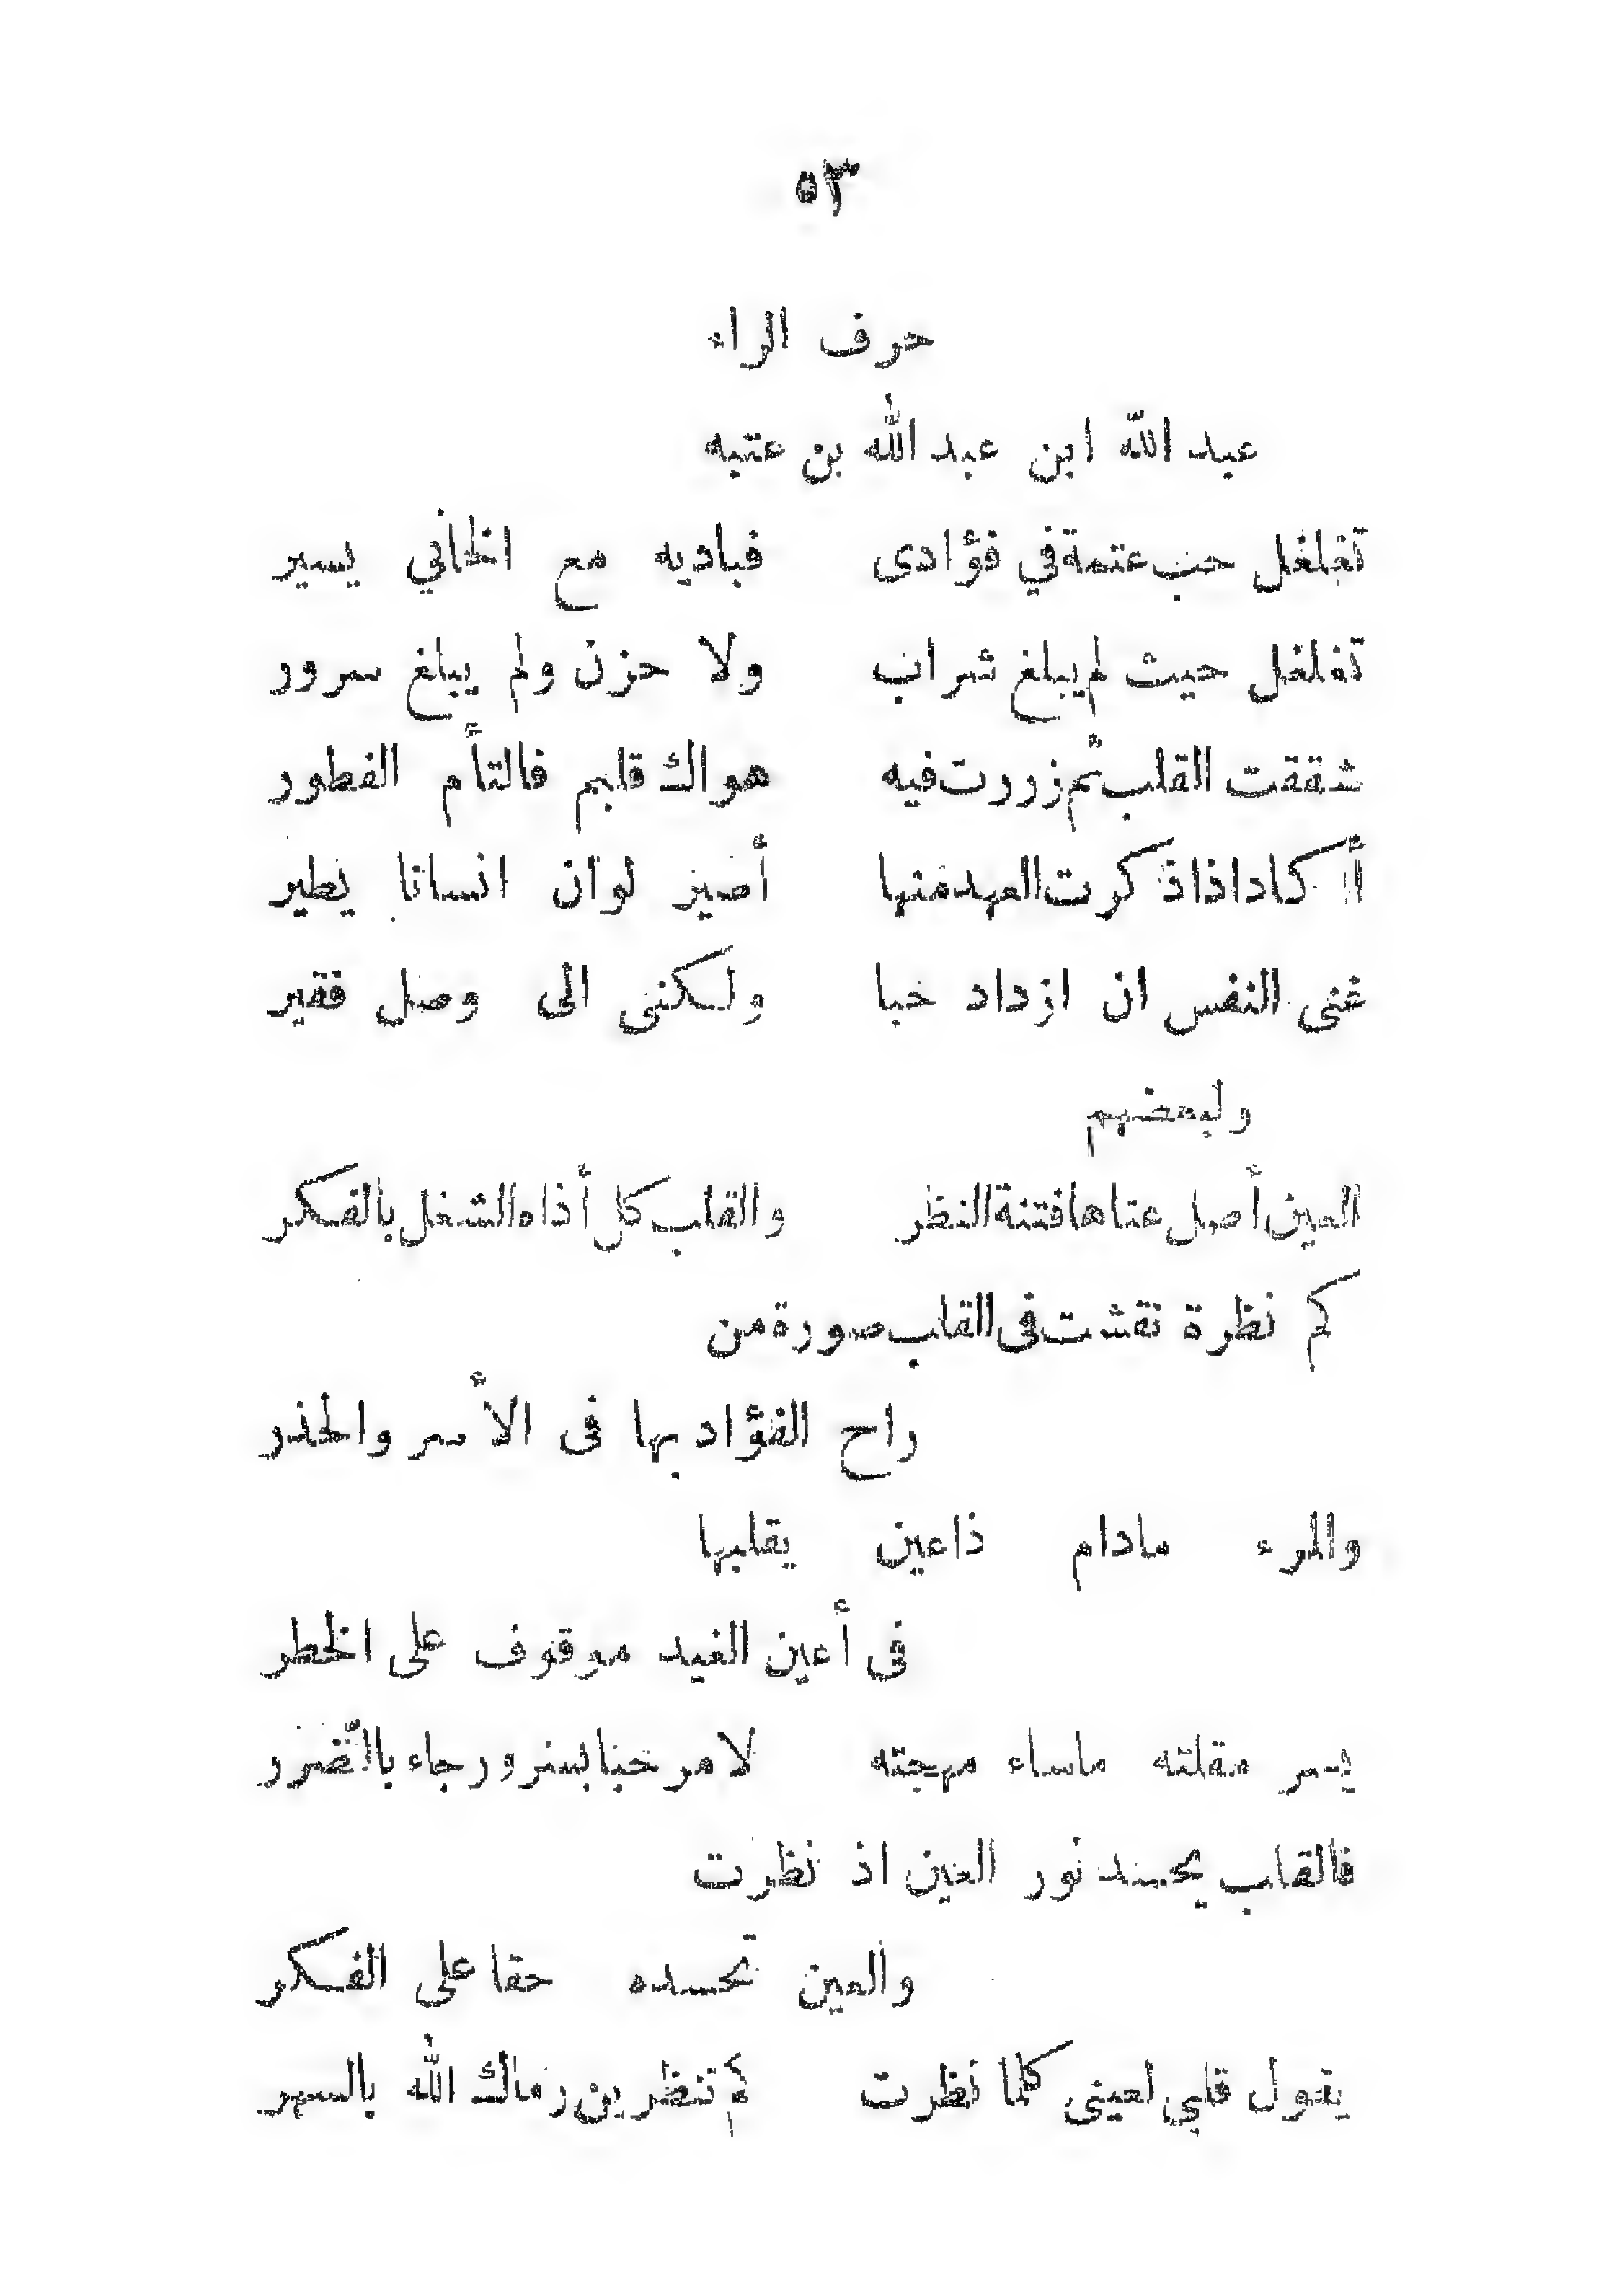 ٥٣
حرف الراء
عبد الله ابن عبد الله بن عتبه
تغلغل حب عتمة في فؤادى فباديه مع الخافي يسير
تغلغل حيث لم يبلغ شراب ولا حزن ولم يبلغ سرور
شققت القلب ثم زررت فيه هواك قليم فالتأم الفطور
أكاد اذا ذكرت العهد منها أصير لو ان انسانا يطير
غنى النفس ان ازداد حبا ولكنى الى وصل فقير
ولبعضهم
العين أصل عناها فتنة النظر والقلب كل أذاه الشغل بالفكر
كم نظرة نقشت فى القلب صورة من
راح الفؤاد بها فى الأسر والحذر
والمرء مادام ذاعين يقلبها
فى أعين الغيد موقوف على الخطر
يسر مقلته ماساء مهجته لا مرحبا بسرور جاء بالضرر
فالقلب يحسد نور العين اذ نظرت
والعين تحسده حقا على الفكر
يقول قلبي لعينى كلما نظرت كم تنظرين رماك الله بالسهر